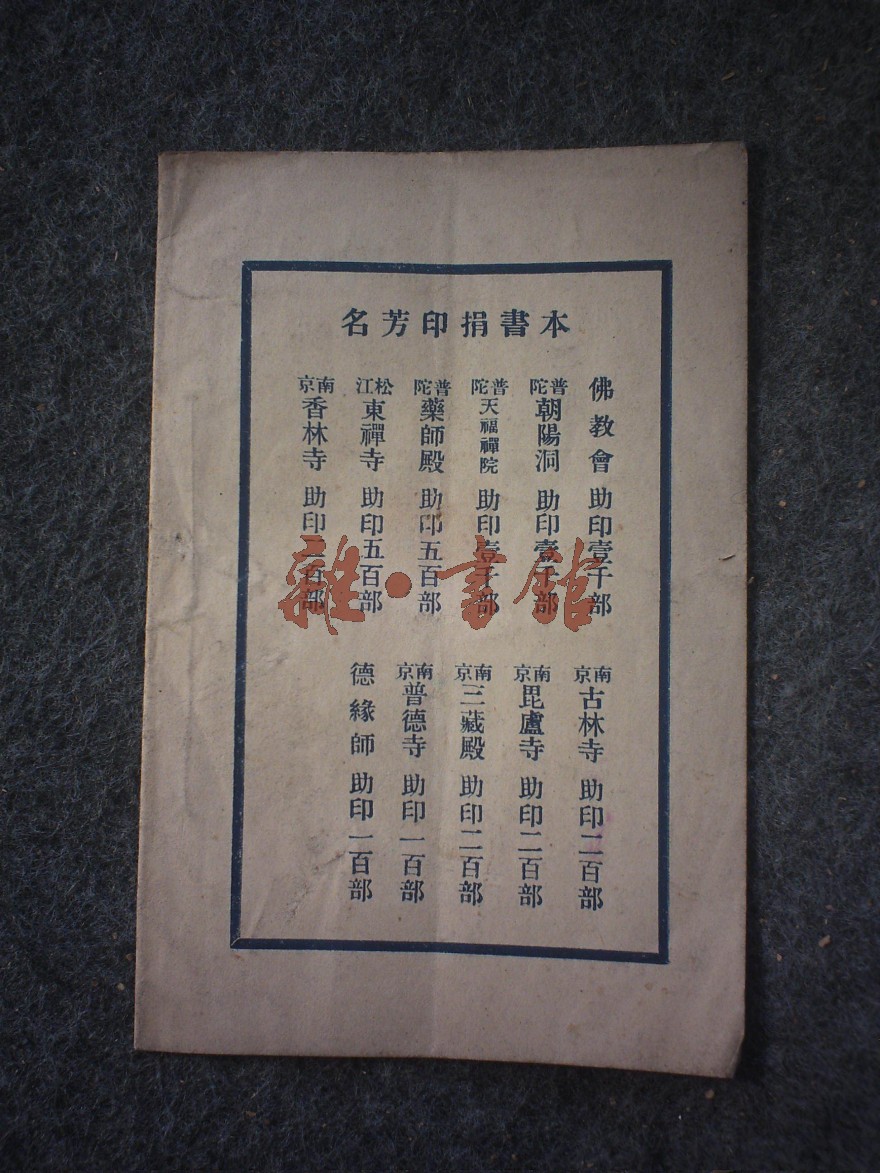 本書捐印芳名
佛教會 助印壹千部
普陀朝陽洞 助印壹千部
普陀天福禪院 助印壹千部
普陀藥師殿 助印五百部
松江東禪寺 助印五百部
南京香林寺 助印二百部
南京古林寺 助印二百部
南京毘盧寺 助印二百部
南京三藏殿 助印二百部
南京普德寺 助印一百部
德緣師 助印一百部
雜·書館